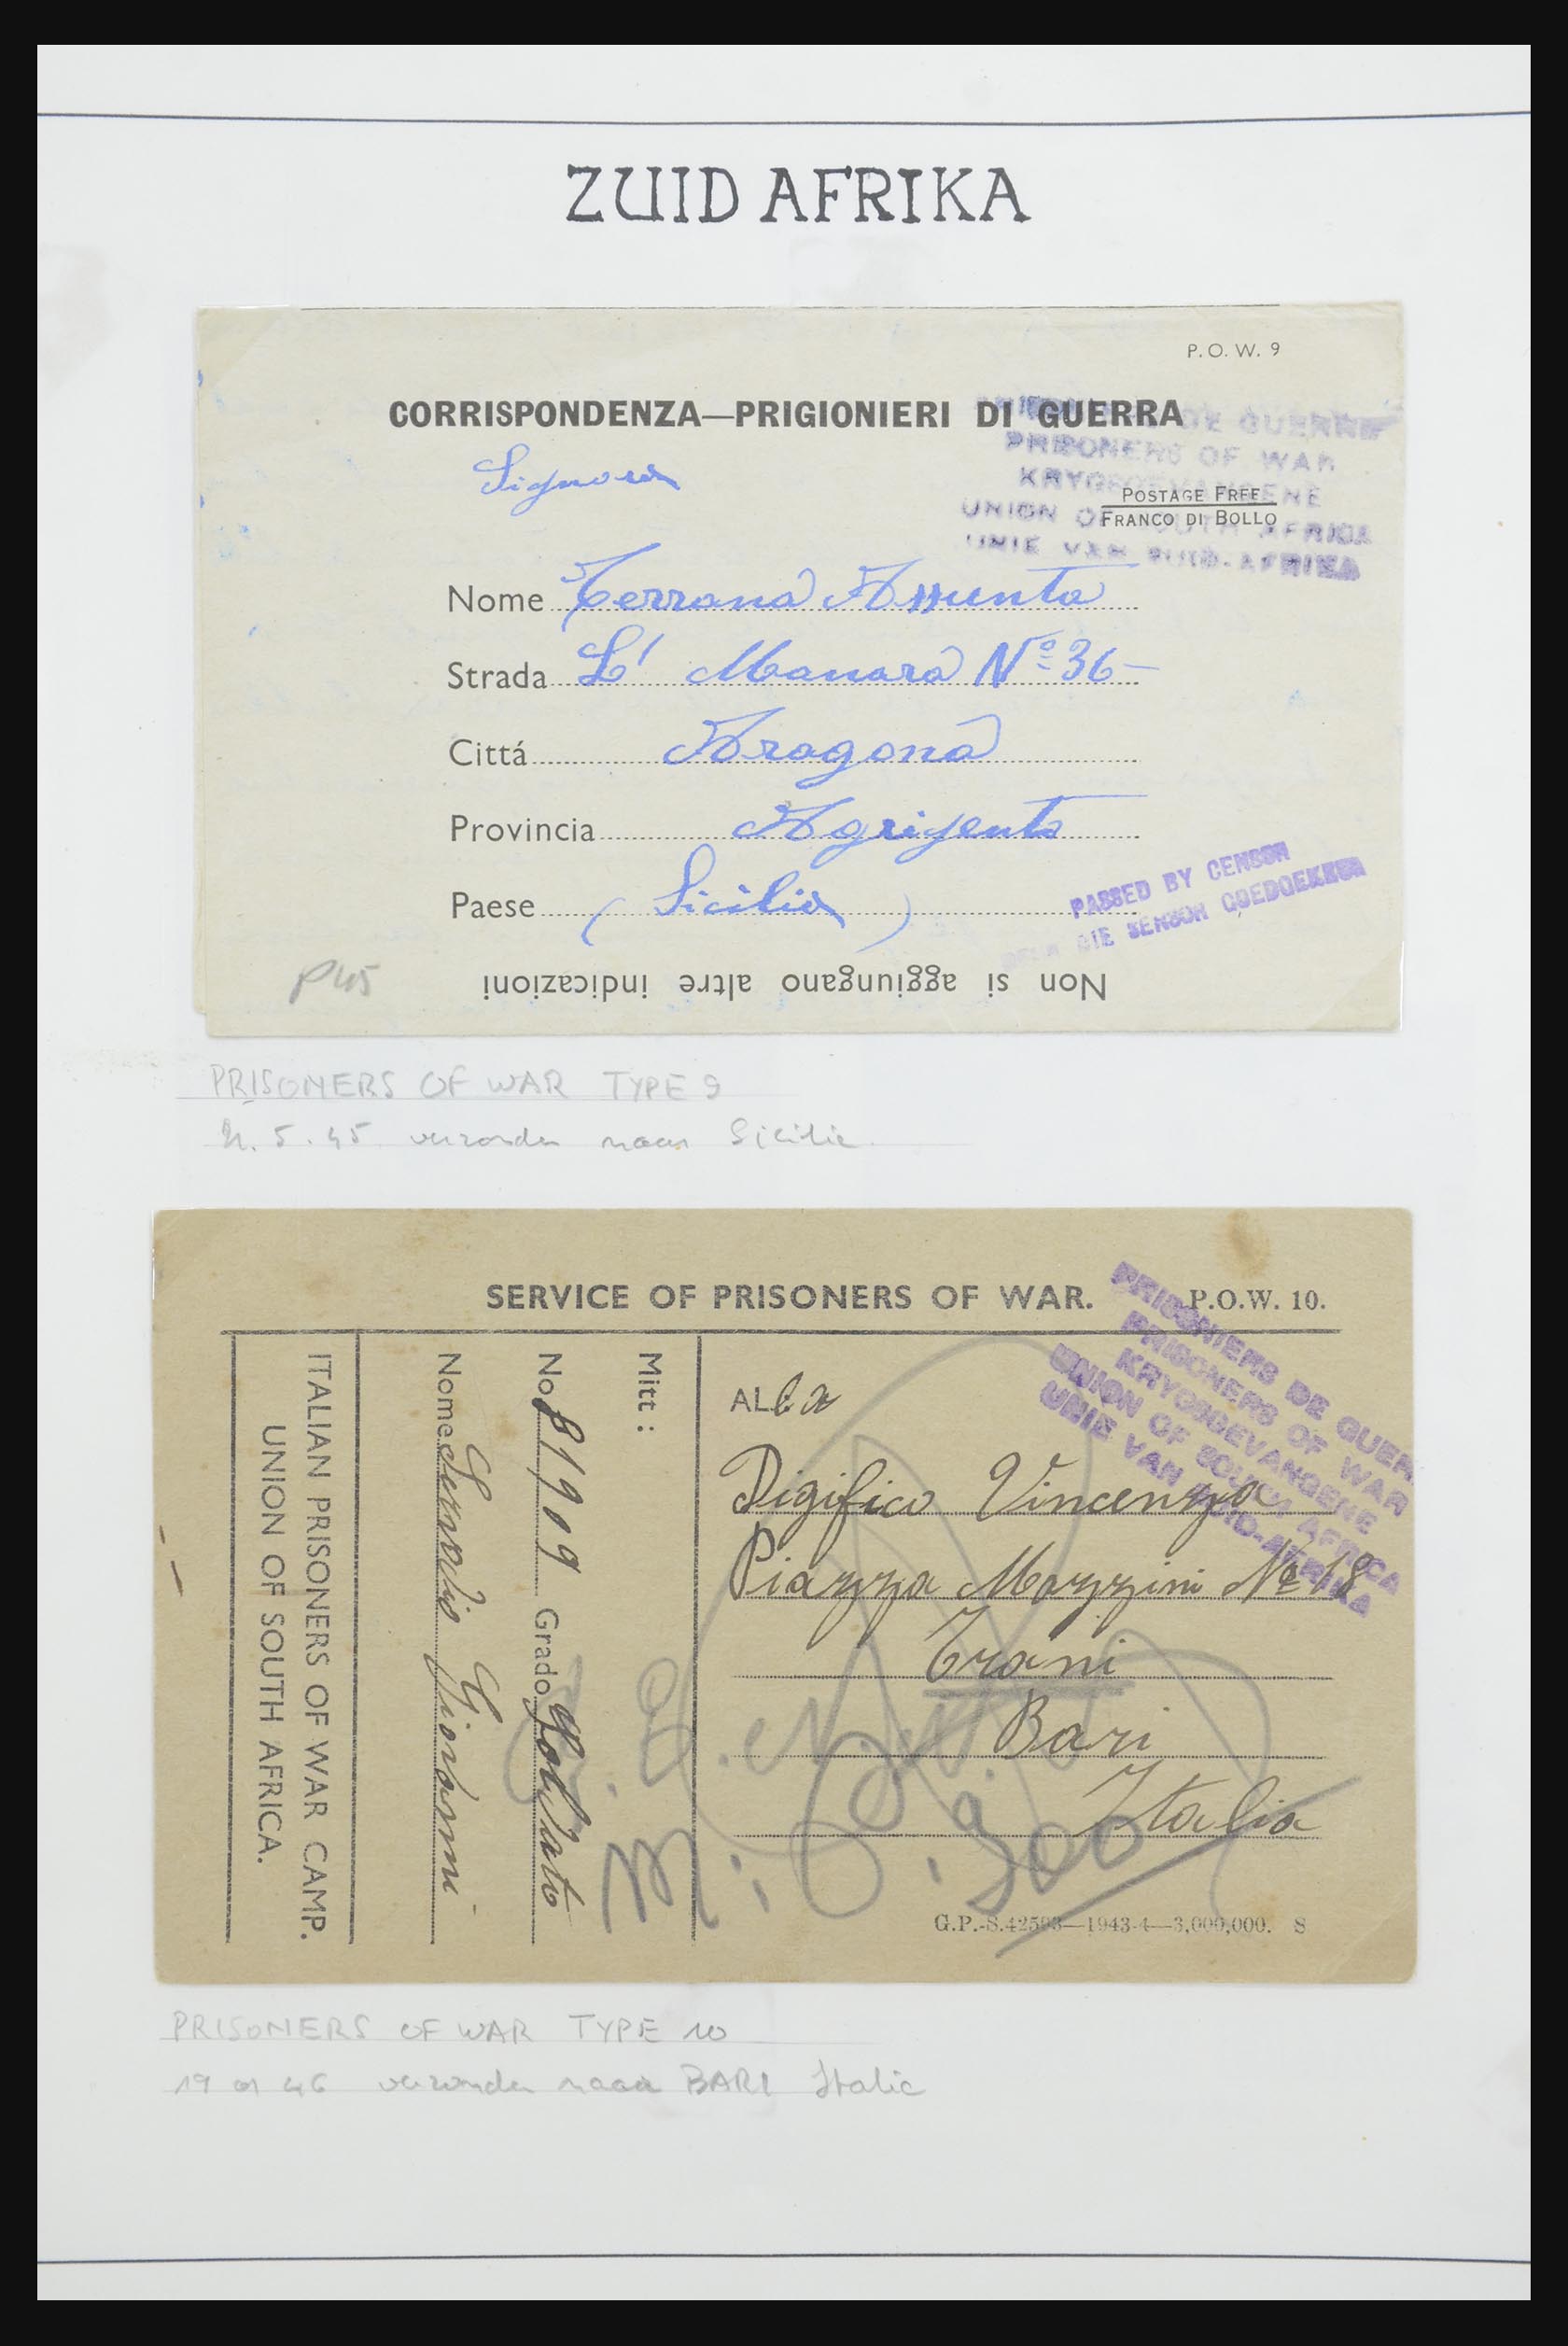 ZUID AFRIKA
P.O.W. 9
CORRISPONDENZA—PRIGIONIERI DI GUERRA
Signora
DE GUERRE
PRISONERS OF WAR
KRYGSGEVANGENE
UNION OF SOUTH AFRICA
UNIE VAN SUID-AFRIKA
POSTAGE FREE
FRANCO DI BOLLO
Nome Terrana Assunta
Strada L! Manara Nº 36
Cittá Aragona
Provincia Agrigento
Paese (Sicilia)
PASSED BY CENSOR
DIE SENSOR GOEDGEKEUR
Non si aggiungano altre indicazioni
P45
PRISONERS OF WAR TYPE 9
5.45 verzonden naar Sicilie
SERVICE OF PRISONERS OF WAR.
P.O.W. 10.
PRISONIERS DE GUER
PRISONERS OF WAR
KRYGSGEVANGENE
UNION OF SOUTH AFRICA
UNIE VAN SUID-AFRIKA
ALla
Digifico Vincenza
Piazza Mazzini Nº 18
Trani
Bari
Italia
G.P.-S.42593—1943-4—3,000,000. S
Mitt :
No 81909 Grado Soldato
Nome Giovanni
ITALIAN PRISONERS OF WAR CAMP.
UNION OF SOUTH AFRICA.
PRISONERS OF WAR TYPE 10
19 46 verzonden naar BARI Italie